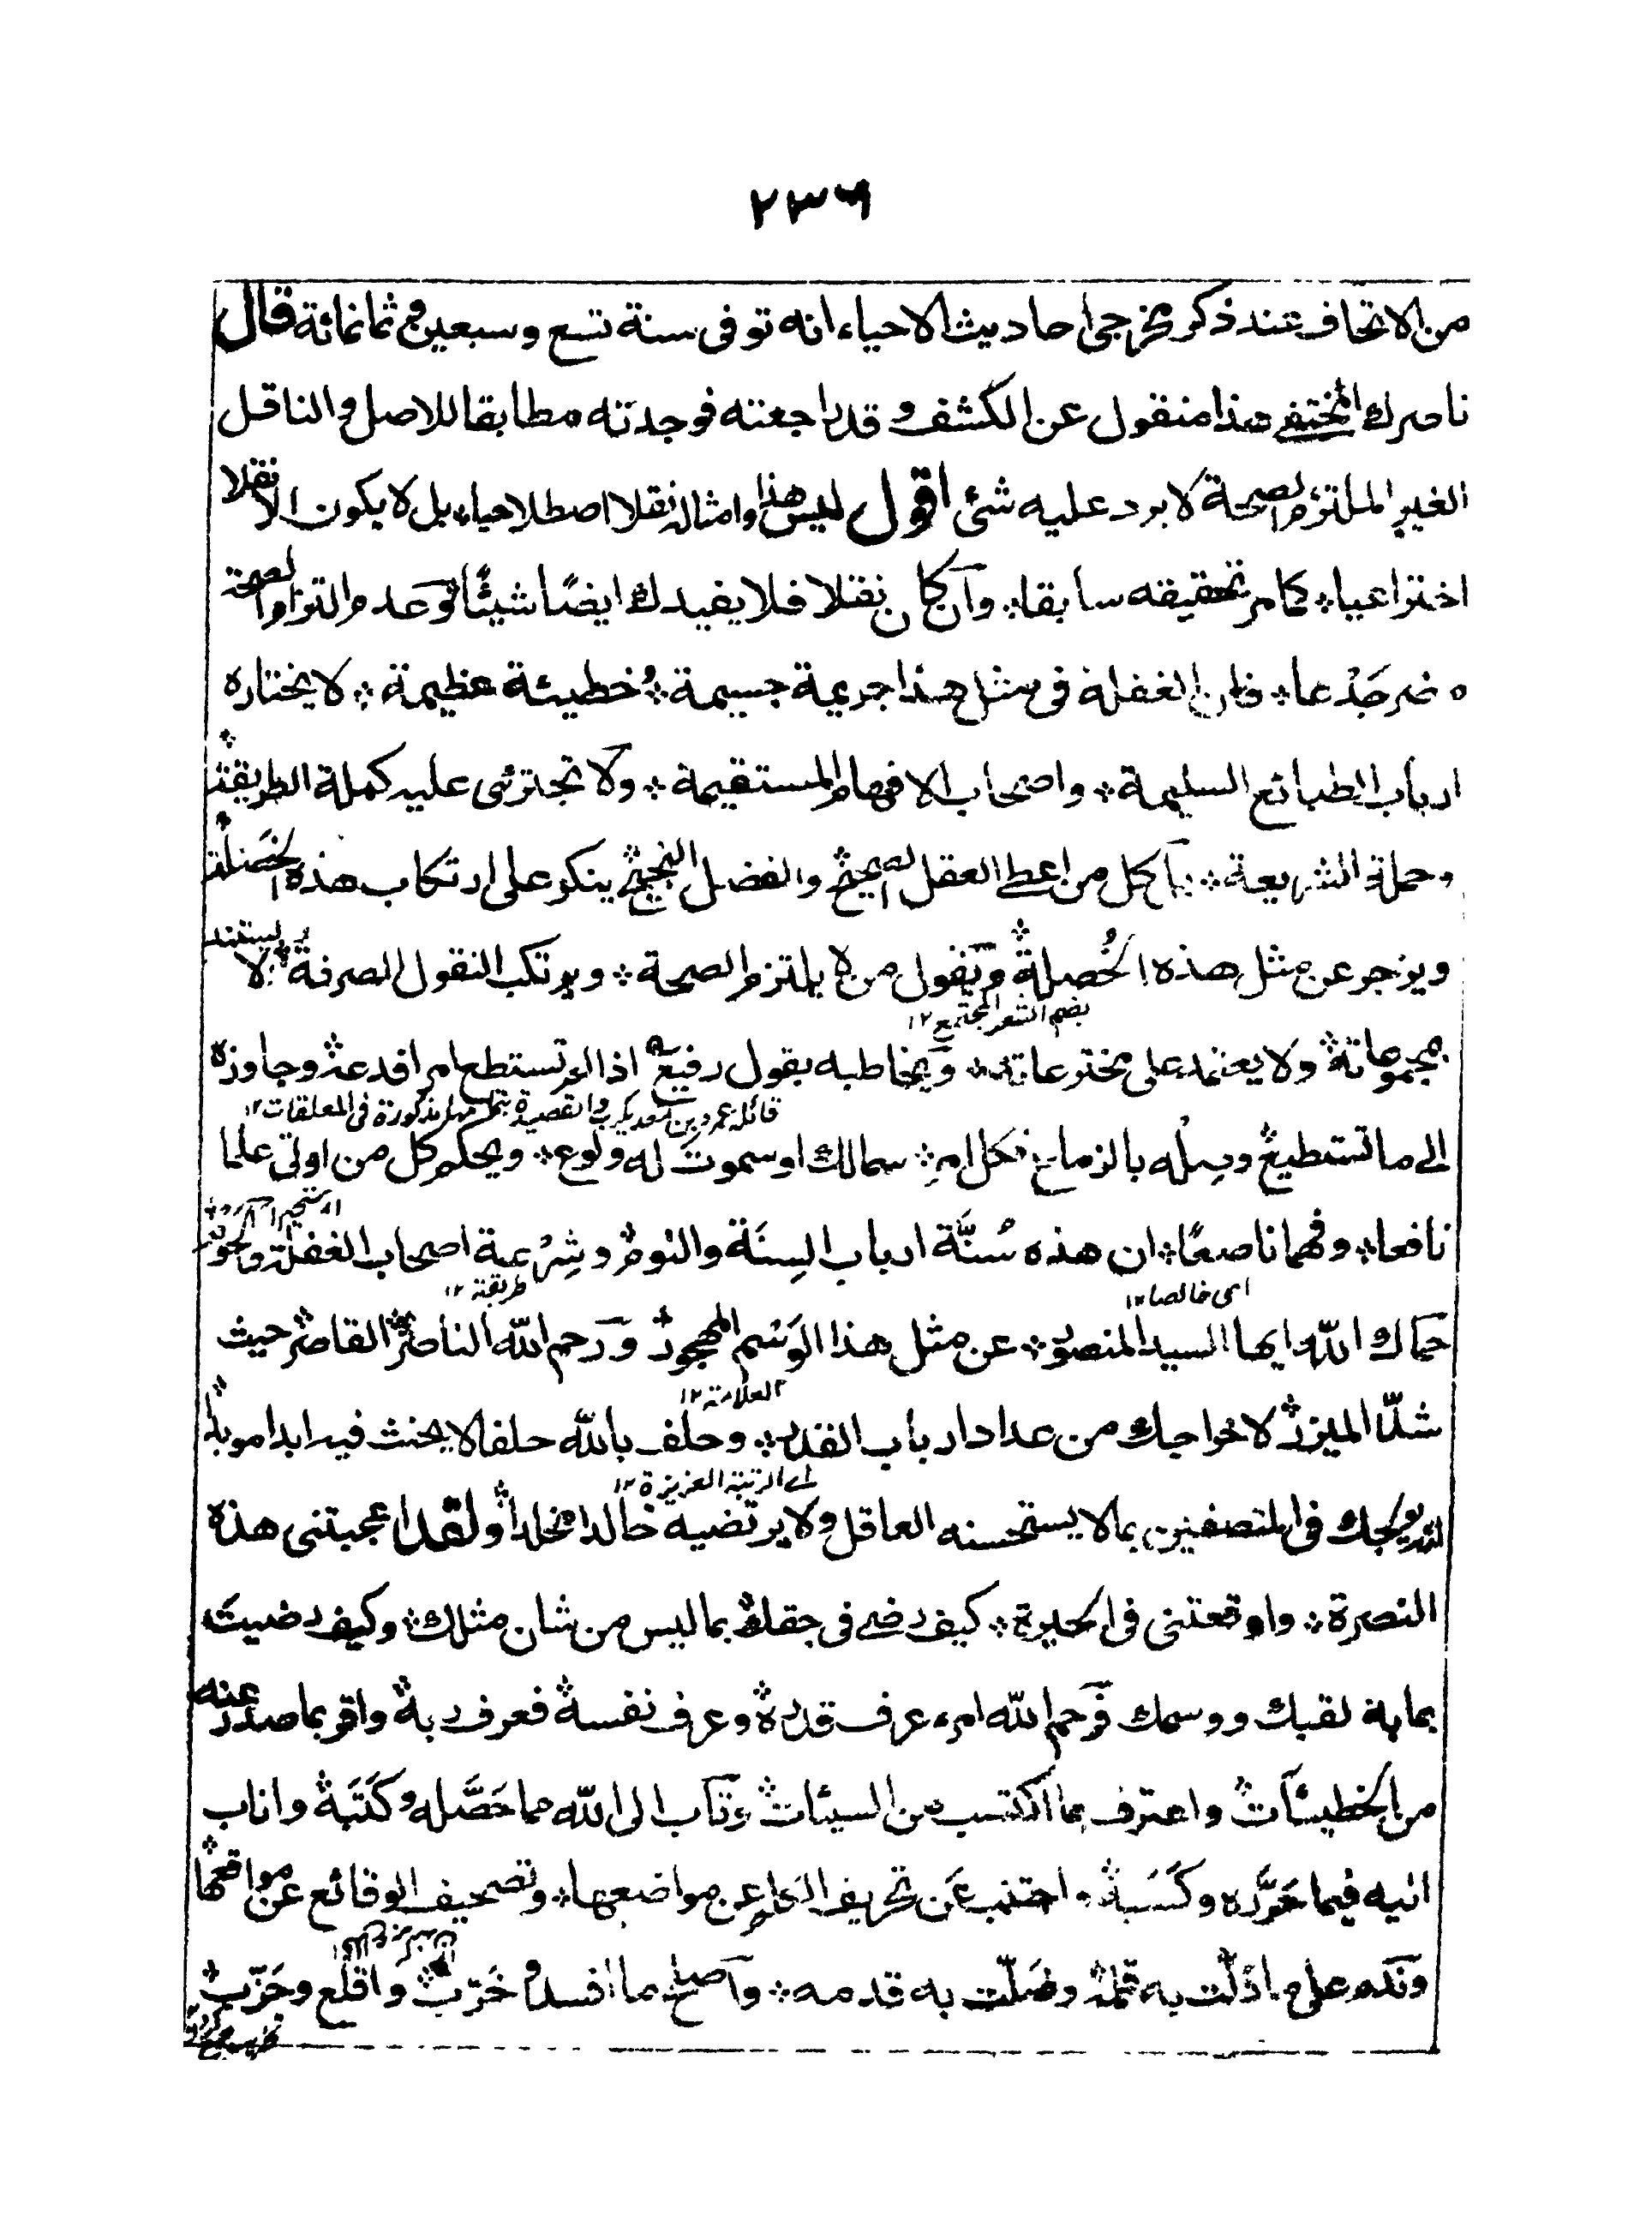 ٢٣٦
من الاتحاف عند ذكر مخرجى احاديث الاحياء انه توفى سنة تسع وسبعين و ثمانمائة قال
ناصرك المختفى هذا منقول عن الكشف و قد راجعته فوجدته مطابقا للاصل والناقل
الغير الملتزم الصحة لا يرد عليه شئ اقول ليس هذا وامثاله نقلا اصطلاحيا؞ بل لا يكون الا نقلا
اختراعيا؞ كما مر تحقيقه سابقا؞ وان كان نقلا فلا يفيدك ايضًا شيئًا نوعدم التزام الصحة
مضر جدا؞ فان الغفلة فى مثل هذا جريمة جسيمة؞ وخطيئة عظيمة؞ لا يختاره
ارباب الطبائع السليمة؞ واصحاب الافهام المستقيمة؞ ولا تجترئ عليه كملة الطريقة؞
وحملة الشريعة؞ بل كل من اعطى العقل الصحيح؞ والفضل النجيح؞ ينكر على ارتكاب هذه الخصلة؞
ويزجر عن مثل هذه الخُصلة؞ ويقول من لا يلتزم الصحة؞ ويرتكب النقول الصرفة؞ لا يستند
بضم الشعر المجتمع ١٢
بمجموعاته؞ ولا يعتمد على مخترعاته؞ ويخاطبه بقول رفيع؞ اذا لم تستطع امرا فدعه؞ وجاوزه
قائله عمرو بن معديكرب والقصيدة بتمامها مذكورة فى المعلقات ١٢
الى ما تستطيع؞ وصِلْه بالزماع فكل امر؞ سمالك او سموتَ له ولوع؞ ويحكم كل من اوتى علما
نافعا؞ وفهما ناصعًا؞ ان هذه سُنَّة ارباب السِنَة والنوم؞ وشِرْعة اصحاب الغفلة
اى خالصا ١٢
طريقة ١٢
حماك الله ايها السيد المنصور؞ عن مثل هذا الوَسْم المهجور؞ ورحم الله الناصر؞ القاصر؞ حيث
العلامة ١٢
شدّ الميزر؞ لاخراجك من عداد ارباب القدر؞ وحلف بالله حلفا لا يحنث فيه ابدا موبدا؞
اى الرتبة العزيزة ١٢
فى المتصفين بما لا يستحسنه العاقل ولا يرتضيه خالدا مخلدا؞ ولقد اعجبتنى هذه
النصرة؞ واوقعتنى فى الحيرة؞ كيف رضى فى حقك؞ بما ليس من شان مثلك؞ وكيف رضيتَ
بما به لقبك ووسمك فرحم الله امرء عرف قدره؞ وعرف نفسه؞ فعرف ربه؞ واقر بما صدر عنه
من الخطيئات؞ واعترف بما اكتسب من السيئات؞ وتاب الى الله مما حَصَّله وكَتَبَه؞ واناب
اليه فيما حَرَّره وكَسَبَه؞ واجتنب عن تحريف الكلم عن مواضعها؞ وتصحيف الوقائع عن مواقعها؞
وندم على ما ذلّت به قلمه؞ وضَلّت به قدمه؞ واصلح ما افسد وخَرّب؞ واقلع وحَزّب؞